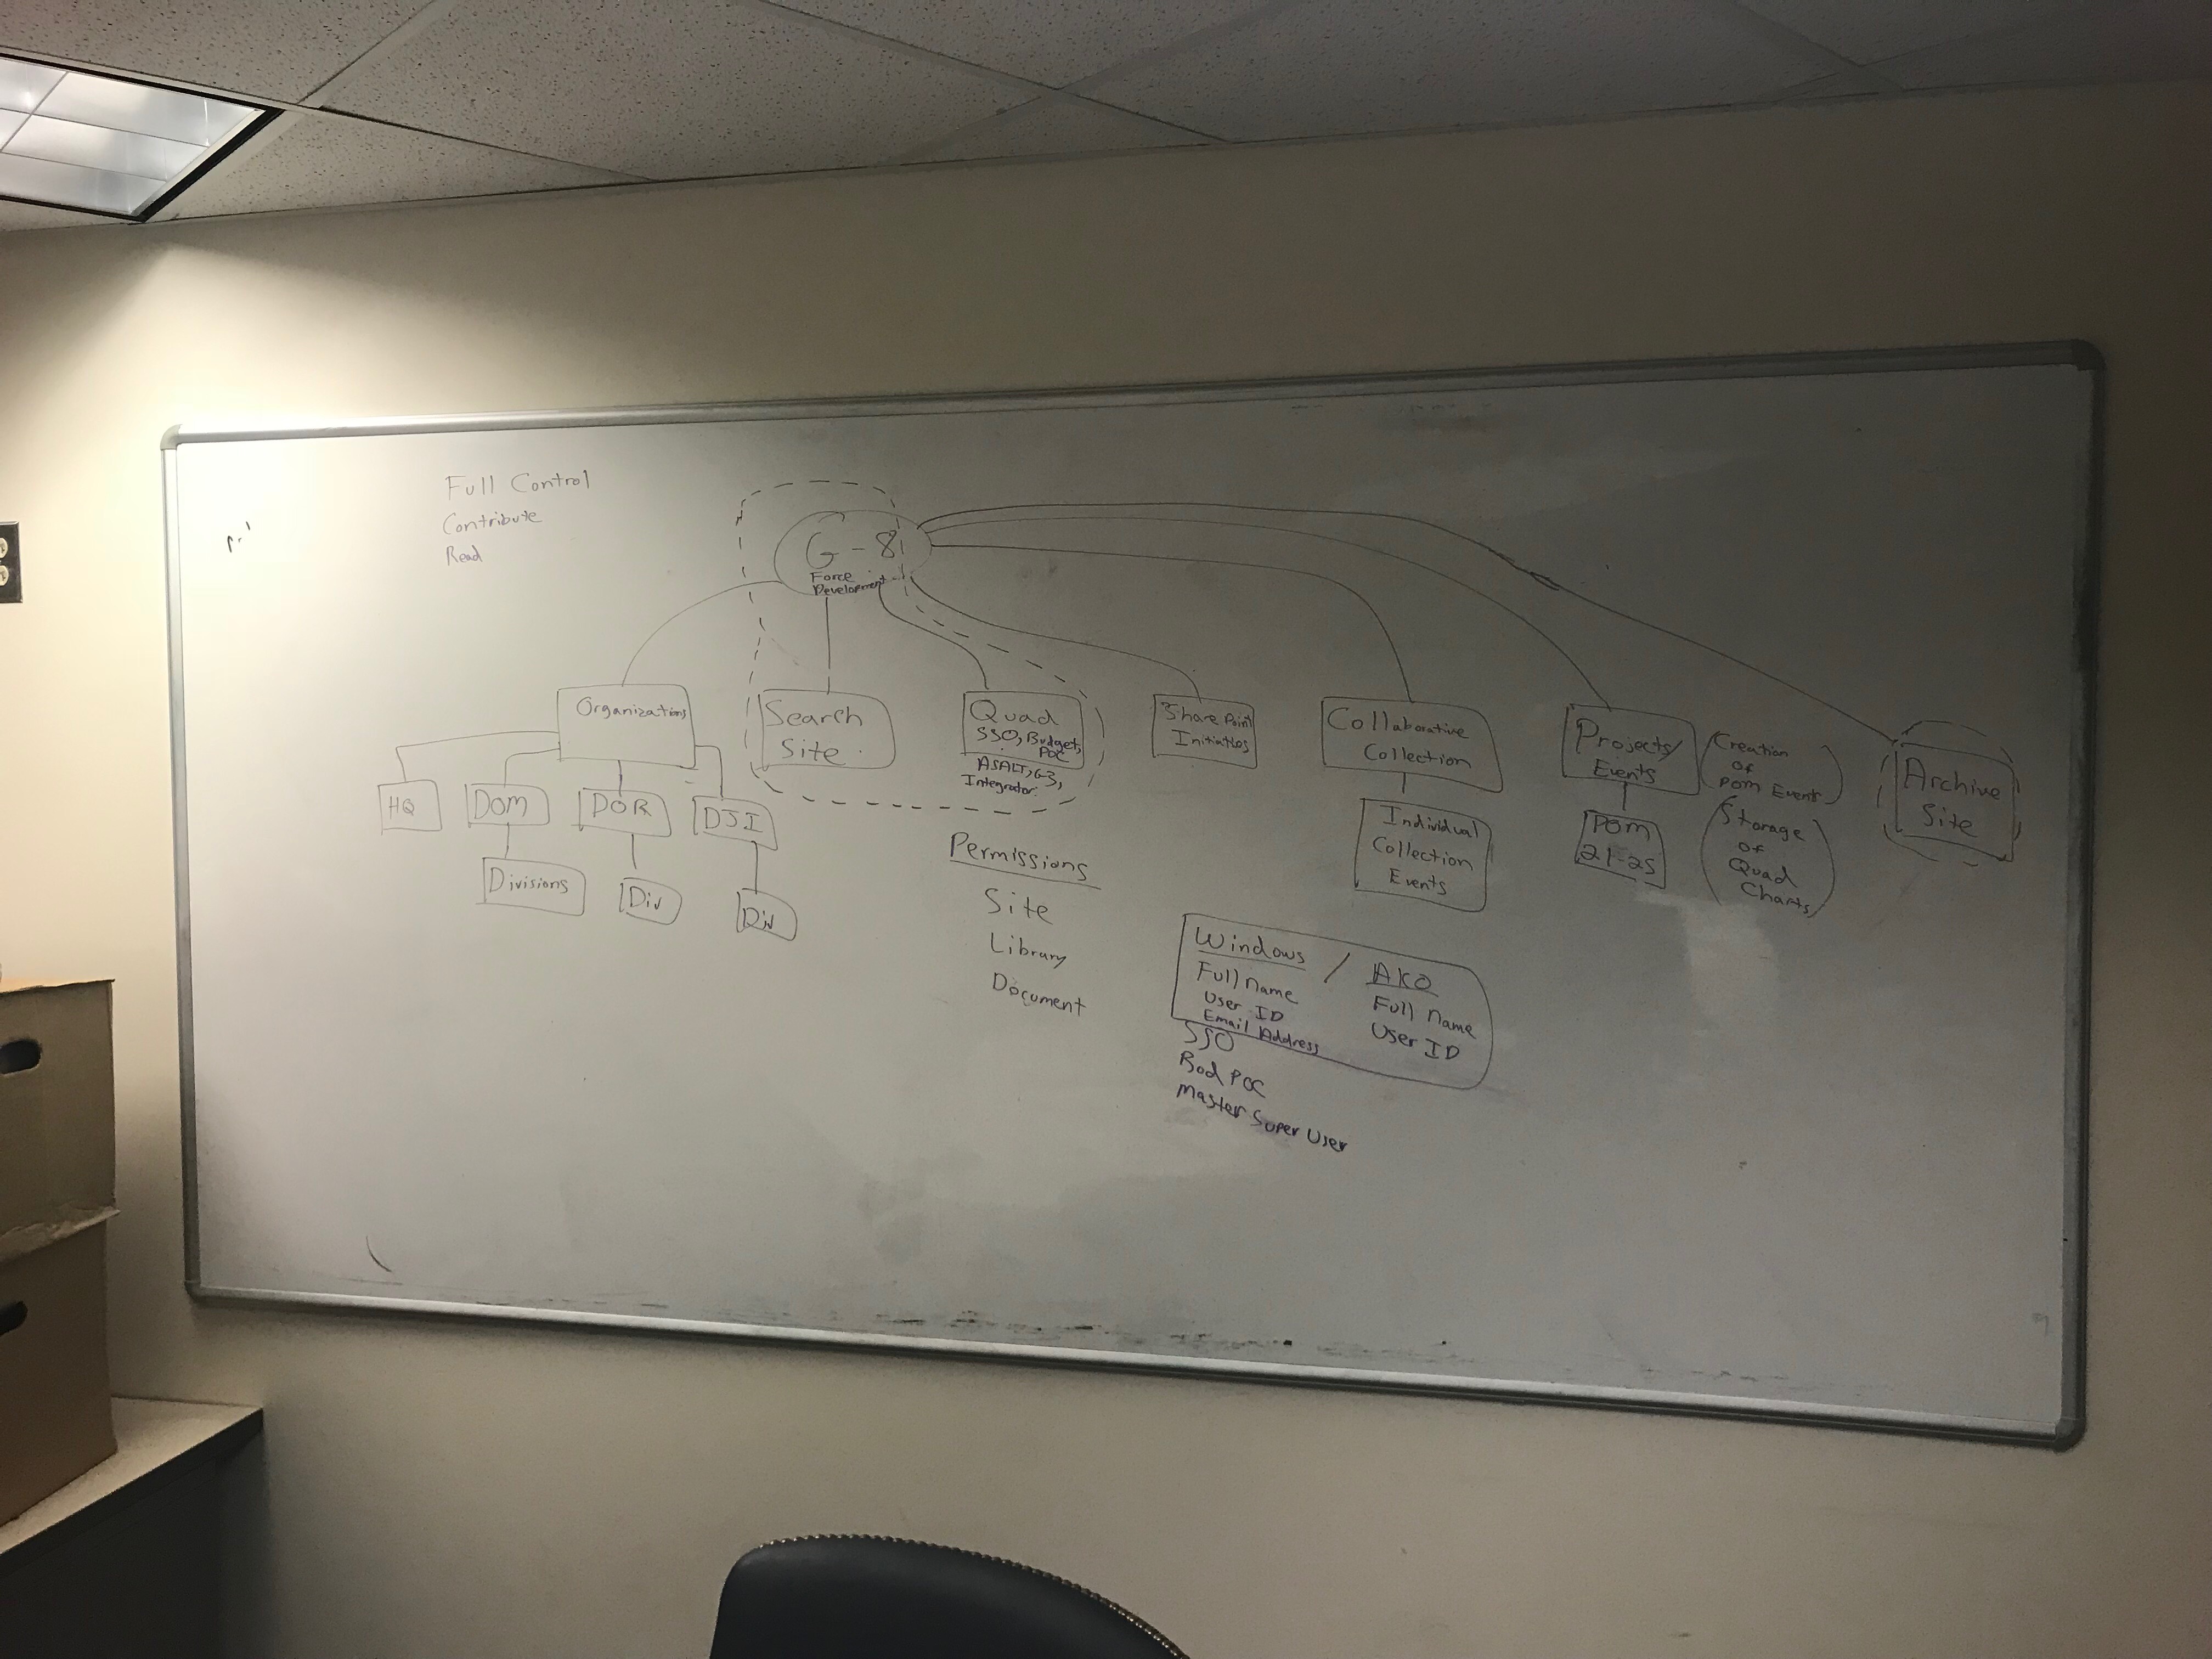 Full Control
Contribute
Read
G-8
Force
Development
Organizations
HQ
DOM
DOR
DJI
Divisions
Div
Div
Search
Site
Quad
SSO, Budget,
POC
ASALT, G3,
Integrator
Share Point
Initiatives
Collaborative
Collection
Individual
Collection
Events
Projects/
Events
POM
21-25
(Creation
of
POM Events)
(Storage
of
Quad
Charts)
Archive
Site
Permissions
Site
Library
Document
Windows / AKO
Full Name
User ID
Email Address
Full Name
User ID
SSO
Bod POC
Master Super User